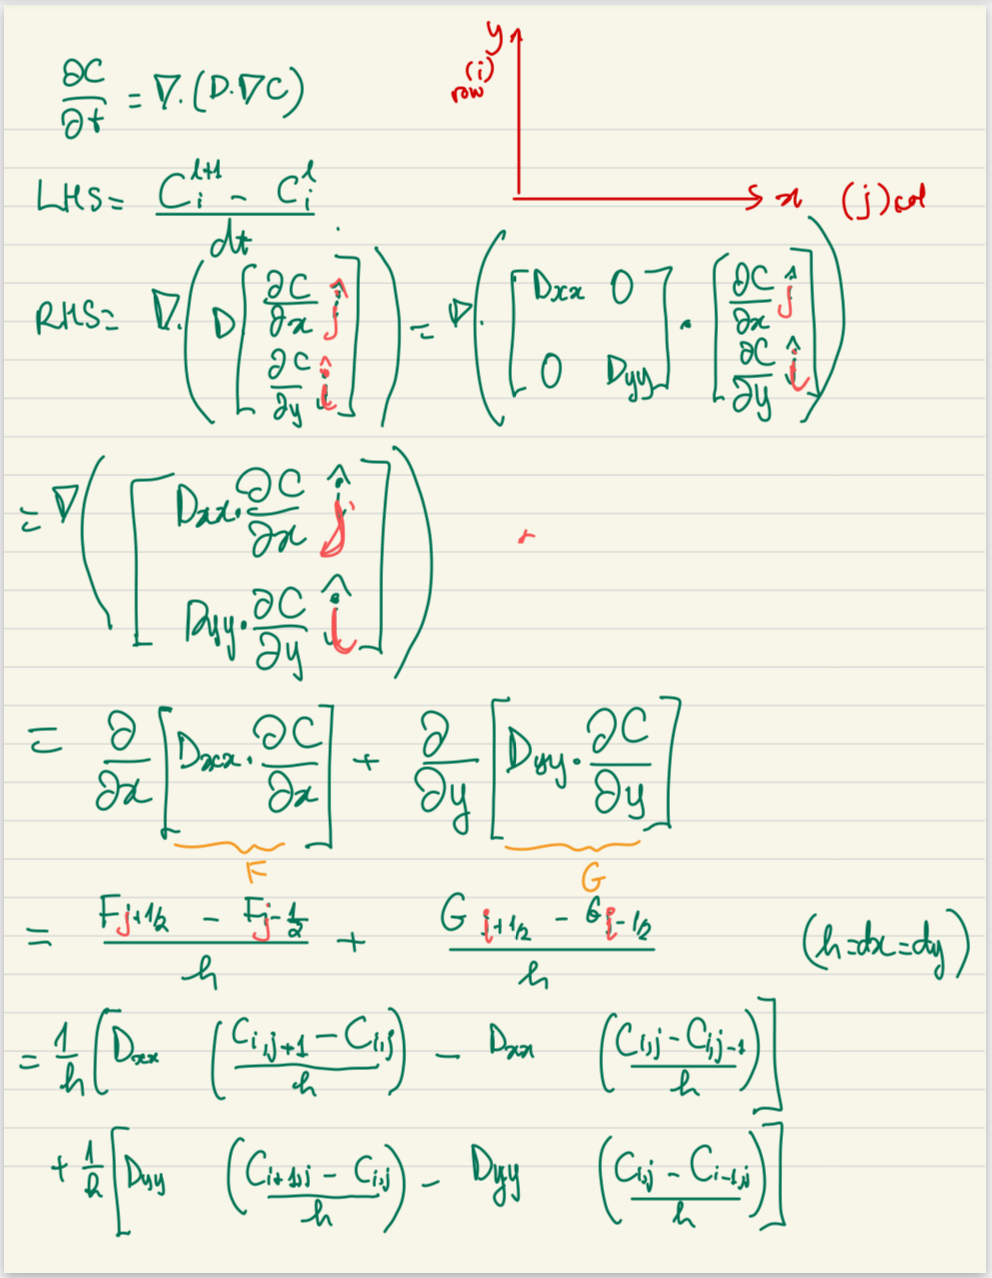 ∂C/∂t = ∇.(D.∇C)
y
(i)
row
x (j) col
LHS = (C_i^{l+1} - C_i^l)/dt
RHS = ∇.( D [ ∂C/∂x ĵ ; ∂C/∂y î ] ) = ∇.( [ Dxx 0 ; 0 Dyy ] . [ ∂C/∂x ĵ ; ∂C/∂y î ] )
= ∇( [ Dxx.∂C/∂x ĵ ; Dyy.∂C/∂y î ] )
= ∂/∂x [ Dxx . ∂C/∂x ] + ∂/∂y [ Dyy . ∂C/∂y ]
F G
= (F_{j+1/2} - F_{j-1/2})/h + (G_{i+1/2} - G_{i-1/2})/h (h=dx=dy)
= 1/h [ Dxx ((C_{i,j+1} - C_{i,j})/h) - Dxx ((C_{i,j} - C_{i,j-1})/h) ]
+ 1/h [ Dyy ((C_{i+1,j} - C_{i,j})/h) - Dyy ((C_{i,j} - C_{i-1,j})/h) ]